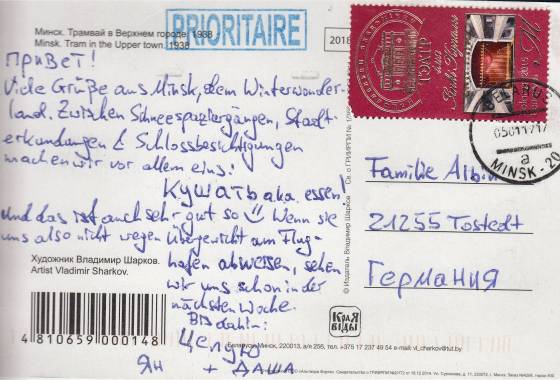 Минск. Трамвай в Верхнем городе. 1938
Minsk. Tram in the Upper town. 1938
PRIORITAIRE
2018
Привет!
Viele Grüße aus Minsk, dem Winterwonder-
land. Zwischen Schneespaziergängen, Stadt
erkundungen & Schlossbesichtigungen
machen wir vor allem eins:
Кушать aka. essen!
Und das ist auch sehr gut so Wenn sie
uns also nicht wegen Übergewicht am Flug-
hafen abweisen, sehen
wir uns schon in der
nächsten Woche.
Bis dahin:
Целую
Ян + Даша
Художник Владимир Шарков.
Artist Vladimir Sharkov.
4 810659 000148
КОЛЯ
ВІДЫ
© Издатель Владимир Шарков
BELARUS
050111717
а
MINSK-20
Familie Albin
21255 Tostedt
Германия
Беларусь, Минск, 220013, а/я 256, тел. +375 17 237 49 54 e-mail: vl_charkov@tut.by